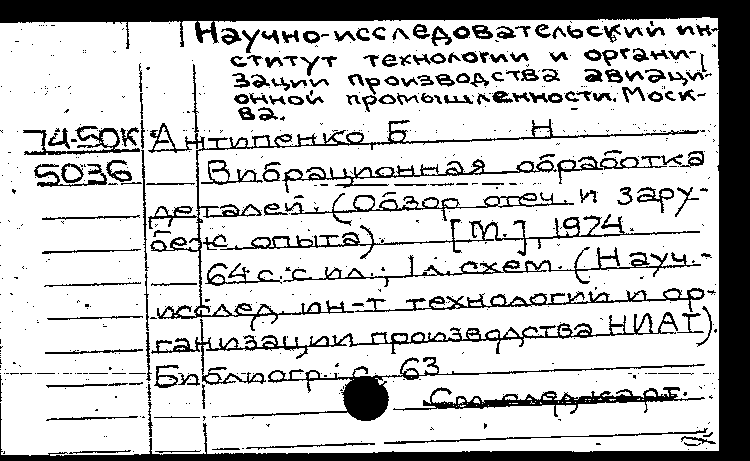 Научно-исследовательский ин-
ститут технологии и органи-
зации производства авиаци-
онной промышленности. Моск-
ва.
74-50К Антипенко, Б Н
5036 Вибрационная обработка
деталей. (Обзор отеч. и зару-
беж. опыта). [М.], 1974.
64 с. с ил.; 1 л. схем. (Науч.-
исслед. ин-т технологии и ор-
ганизации производства НИАТ).
Библиогр.: с. 63.
См. след. карт.